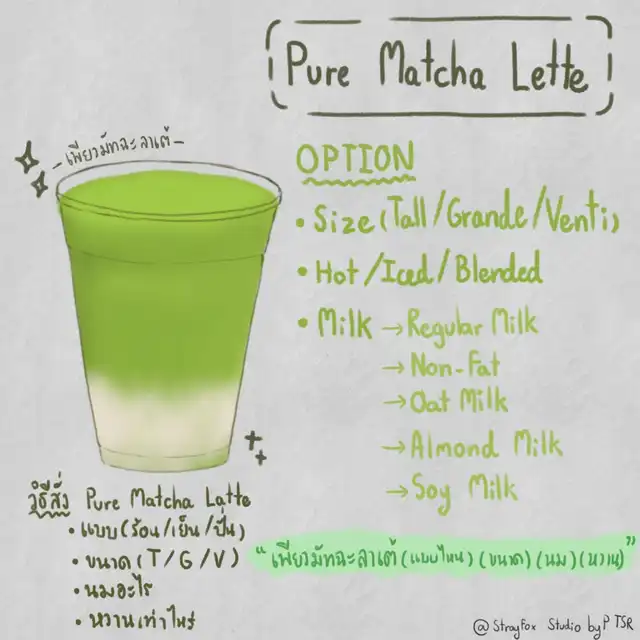 Pure Matcha Lette
- เพียวมัทฉะลาเต้ -
OPTION
• Size (Tall/Grande/Venti)
• Hot/Iced/Blended
• Milk → Regular Milk
→ Non-Fat
→ Oat Milk
→ Almond Milk
→ Soy Milk
วิธีสั่ง Pure Matcha Latte
• แบบ (ร้อน/เย็น/ปั่น)
• ขนาด (T/G/V)
• นมอะไร
• หวานเท่าไหร่
“เพียวมัทฉะลาเต้ (แบบไหน) (ขนาด) (นม) (หวาน)”
@StrayFox Studio by P TSR